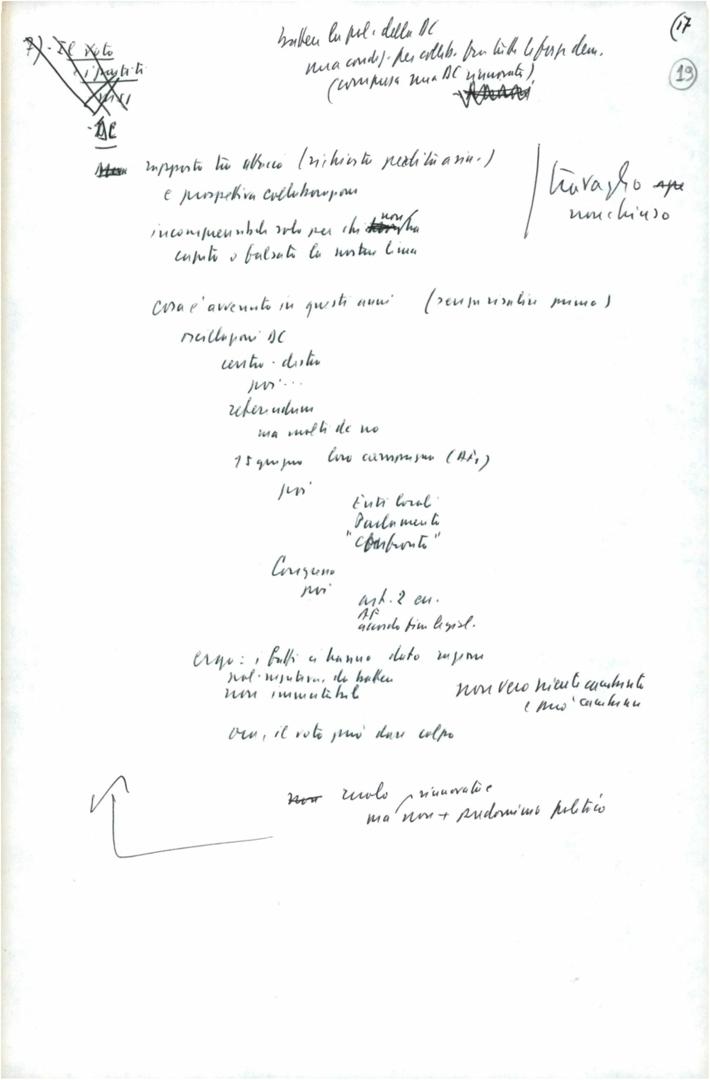 (17
19
7) - Il voto
i partiti
- DC
battere la pol. della DC
una condiz. per collab. fra tutte le forze dem.
(compresa una DC rinnovata)
rapporto tra attacco (richiesta perdita a sin.)
e prospettiva collaborazioni
incomprensibile solo per chi non ha
capito o falsato la nostra linea
travaglio
non chiuso
cosa è avvenuto in questi anni (senza risalire prima)
oscillazioni DC
centro-destra
poi...
referendum
ma molti dc no
15 giugno loro campagna
poi
Enti locali
Parlamento
"Confronto"
Congresso
poi
art. 2
accordo fine legisl.
ergo: i fatti ci hanno dato ragione
da battere
non immutabile
non vero niente cambiato
e può cambiare
ora, il voto può dare colpo
ruolo rinnovatore
ma non + predominio politico